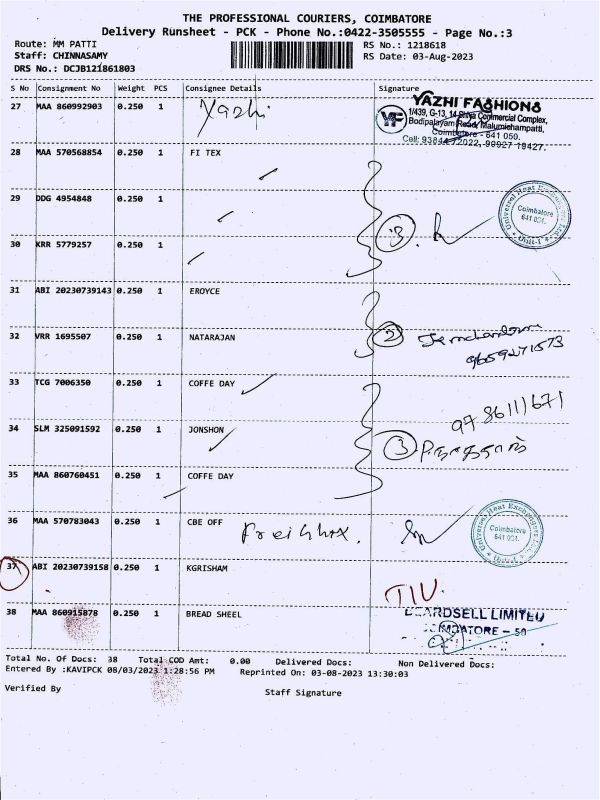 THE PROFESSIONAL COURIERS, COIMBATORE
Delivery Runsheet - PCK - Phone No.:0422-3505555 - Page No.:3
Route: MM PATTI
RS No.: 1218618
Staff: CHINNASAMY
RS Date: 03-Aug-2023
DRS No.: DCJB121861803
S No Consignment No Weight PCS Consignee Details Signature
27 MAA 860992903 0.250 1 Yazhi
YAZHI FASHIONS
YF
1/439, G-13, 14 Shiva Commercial Complex,
Bodipalayam Road, Malumichampatti,
Coimbatore - 641 050.
Cell: 93844 72022, 99927 19427.
28 MAA 570568854 0.250 1 FI TEX
29 DDG 4954848 0.250 1
3
Universal Heat Exchangers
Coimbatore
641 021.
Unit-I
30 KRR 5779257 0.250 1
31 ABI 20230739143 0.250 1 EROYCE
32 VRR 1695507 0.250 1 NATARAJAN
2
9659271573
33 TCG 7006350 0.250 1 COFFE DAY
9786111671
34 SLM 325091592 0.250 1 JONSHON
3
35 MAA 860760451 0.250 1 COFFE DAY
36 MAA 570783043 0.250 1 CBE OFF
Universal Heat Exchangers
Coimbatore
641 021.
37 ABI 20230739158 0.250 1 KGRISHAM
38 MAA 860915878 0.250 1 BREAD SHEEL
BEARDSELL LIMITED
COIMBATORE - 50
Total No. Of Docs: 38 Total COD Amt: 0.00 Delivered Docs: Non Delivered Docs:
Entered By :KAVIPCK 08/03/2023 1:28:56 PM Reprinted On: 03-08-2023 13:30:03
Verified By
Staff Signature